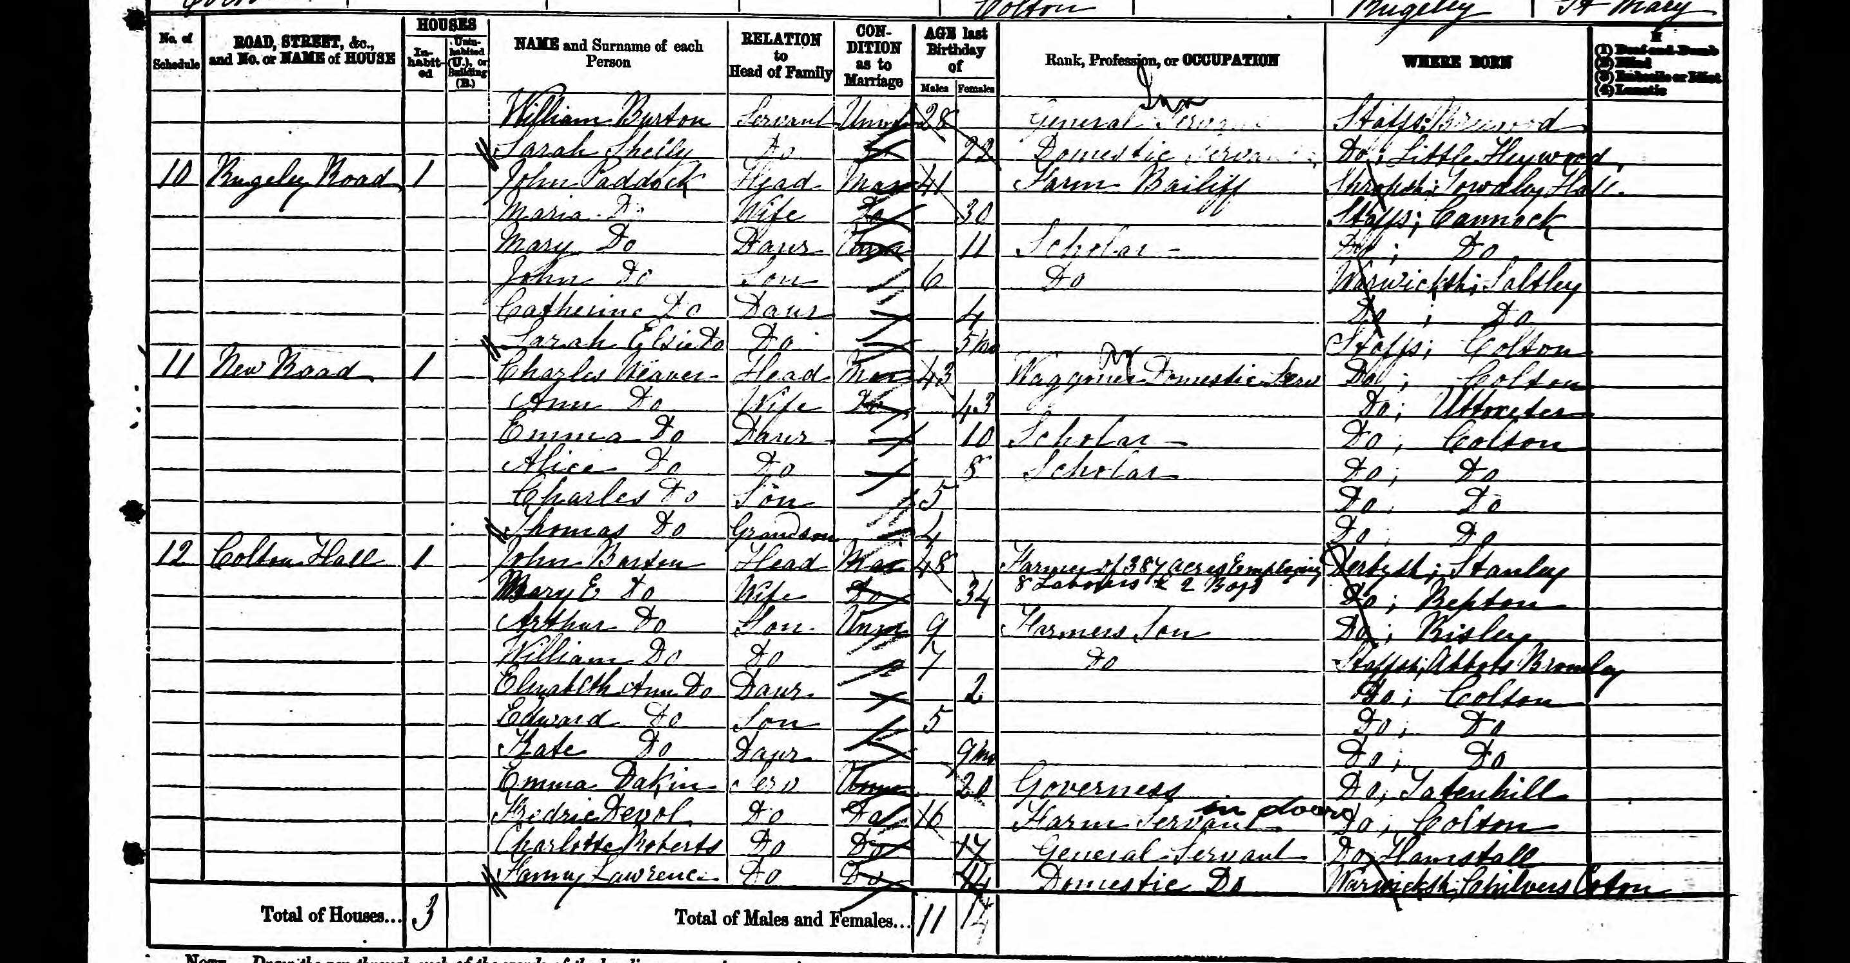 Colton Rugeley St Mary
No. of Schedule ROAD, STREET, &c., and No. or NAME of HOUSE HOUSES In-habit-ed Unin-habited (U.), or Building (B.) NAME and Surname of each Person RELATION to Head of Family CON-DITION as to Marriage AGE last Birthday of Males Females Rank, Profession, or OCCUPATION WHERE BORN (1) Deaf-and-Dumb (2) Blind (3) Imbecile or Idiot (4) Lunatic
William Burton Servant Unm 28 General Servant Staffs; Brewood
Sarah Shelly Do 22 Domestic Servant Do; Little Heywood
10 Rugeley Road 1 John Paddock Head Mar 41 Farm Bailiff Shropsh; Hall
Maria Do Wife Do 30 Staffs; Cannock
Mary Do Daur Unm 11 Scholar Do; Do
John Do Son 6 Do Warwicksh; Saltley
Catherine Do Daur 4 Do; Do
Sarah Elsie Do Do 5 Mo Staffs; Colton
11 New Road 1 Charles Weaver Head Mar 43 Waggoner Domestic Serv Do; Colton
Ann Do Wife Do 43 Do; Uttoxeter
Emma Do Daur 10 Scholar Do; Colton
Alice Do Do 8 Scholar Do; Do
Charles Do Son 5 Do; Do
Thomas Do Grandson 4 Do; Do
12 Colton Hall 1 John Burton Head Mar 48 Farmer of 387 acres Employing 8 Labourers & 2 Boys Derbysh; Stanley
Mary E Do Wife Do 34 Do; Repton
Arthur Do Son Unm 9 Farmers Son Do; Risley
William Do Do 7 Do Staffs; Abbots Bromley
Elizabeth Ann Do Daur 2 Do; Colton
Edward Do Son 5 Do; Do
Kate Do Daur 9 Mo Do; Do
Emma Dakin Serv Unm 20 Governess Do; Tatenhill
Fredric Devol Do Do 16 Farm Servant in doors Do; Colton
Charlotte Roberts Do Do 17 General Servant Do; Hamstall
Fanny Lawrence Do Do 14 Domestic Do Warwicksh; Chilvers Coton
Total of Houses... 3 Total of Males and Females... 11 14